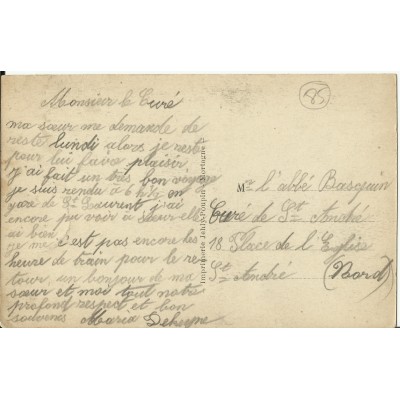 85
Monsieur le Curé
ma sœur me demande de
reste lundi alors je reste
pour lui faire plaisir
j'ai fait un très bon voyage
je suis rendu à 6 h ½ en
gare de St Laurent j'ai
encore pu voir à
ai bien
je ne c'est pas encore les
heure de train pour le re
tour un bonjour de ma
sœur et moi tout notre
profond respect et bon
souvenir Maria
Imprimerie Mortagne
Mr l'abbé Basquin
Curé de St André
18 Place de l'Eglise
St André (Nord)